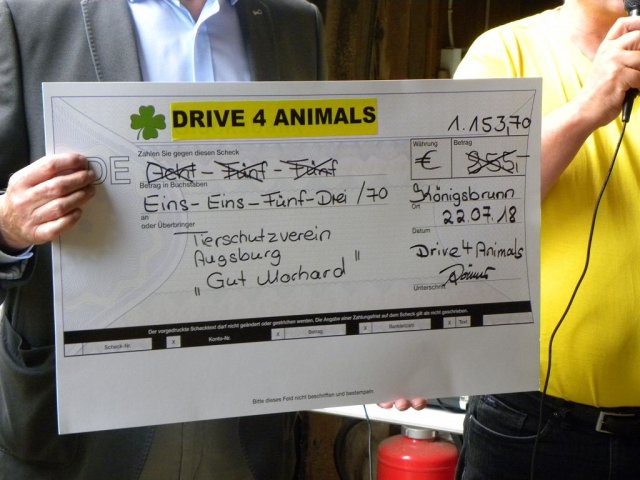 DRIVE 4 ANIMALS
1.153,70
Zahlen Sie gegen diesen Scheck
Währung
Betrag
DE
Acht - Fünf - Fünf
€
855,-
Betrag in Buchstaben
Eins - Eins - Fünf - Drei /70
Königsbrunn
an
Ort
22.07.18
oder Überbringer
Tierschutzverein
Datum
Augsburg
Drive 4 Animals
„ Gut Morhard "
Unterschrift
Der vorgedruckte Schecktext darf nicht geändert oder gestrichen werden. Die Angabe einer Zahlungsfrist auf dem Scheck gilt als nicht geschrieben.
Scheck-Nr. X Konto-Nr. X Betrag X Bankleitzahl X Text
Bitte dieses Feld nicht beschriften und bestempeln.